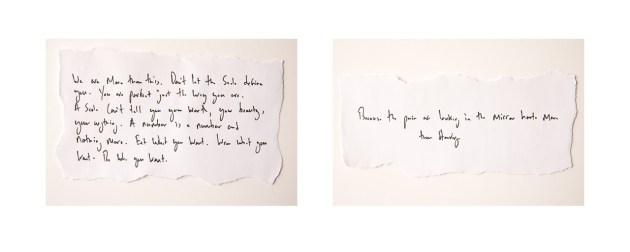 We are More than this. Don't let the Scale define
you. You are perfect just the way you are.
A Scale Can't tell you your worth, your beauty,
your anything. A number is a number and
nothing more. Eat what you want. Wear what you
Want. Do what you want.
the pain of looking in the Mirror hurts More
than